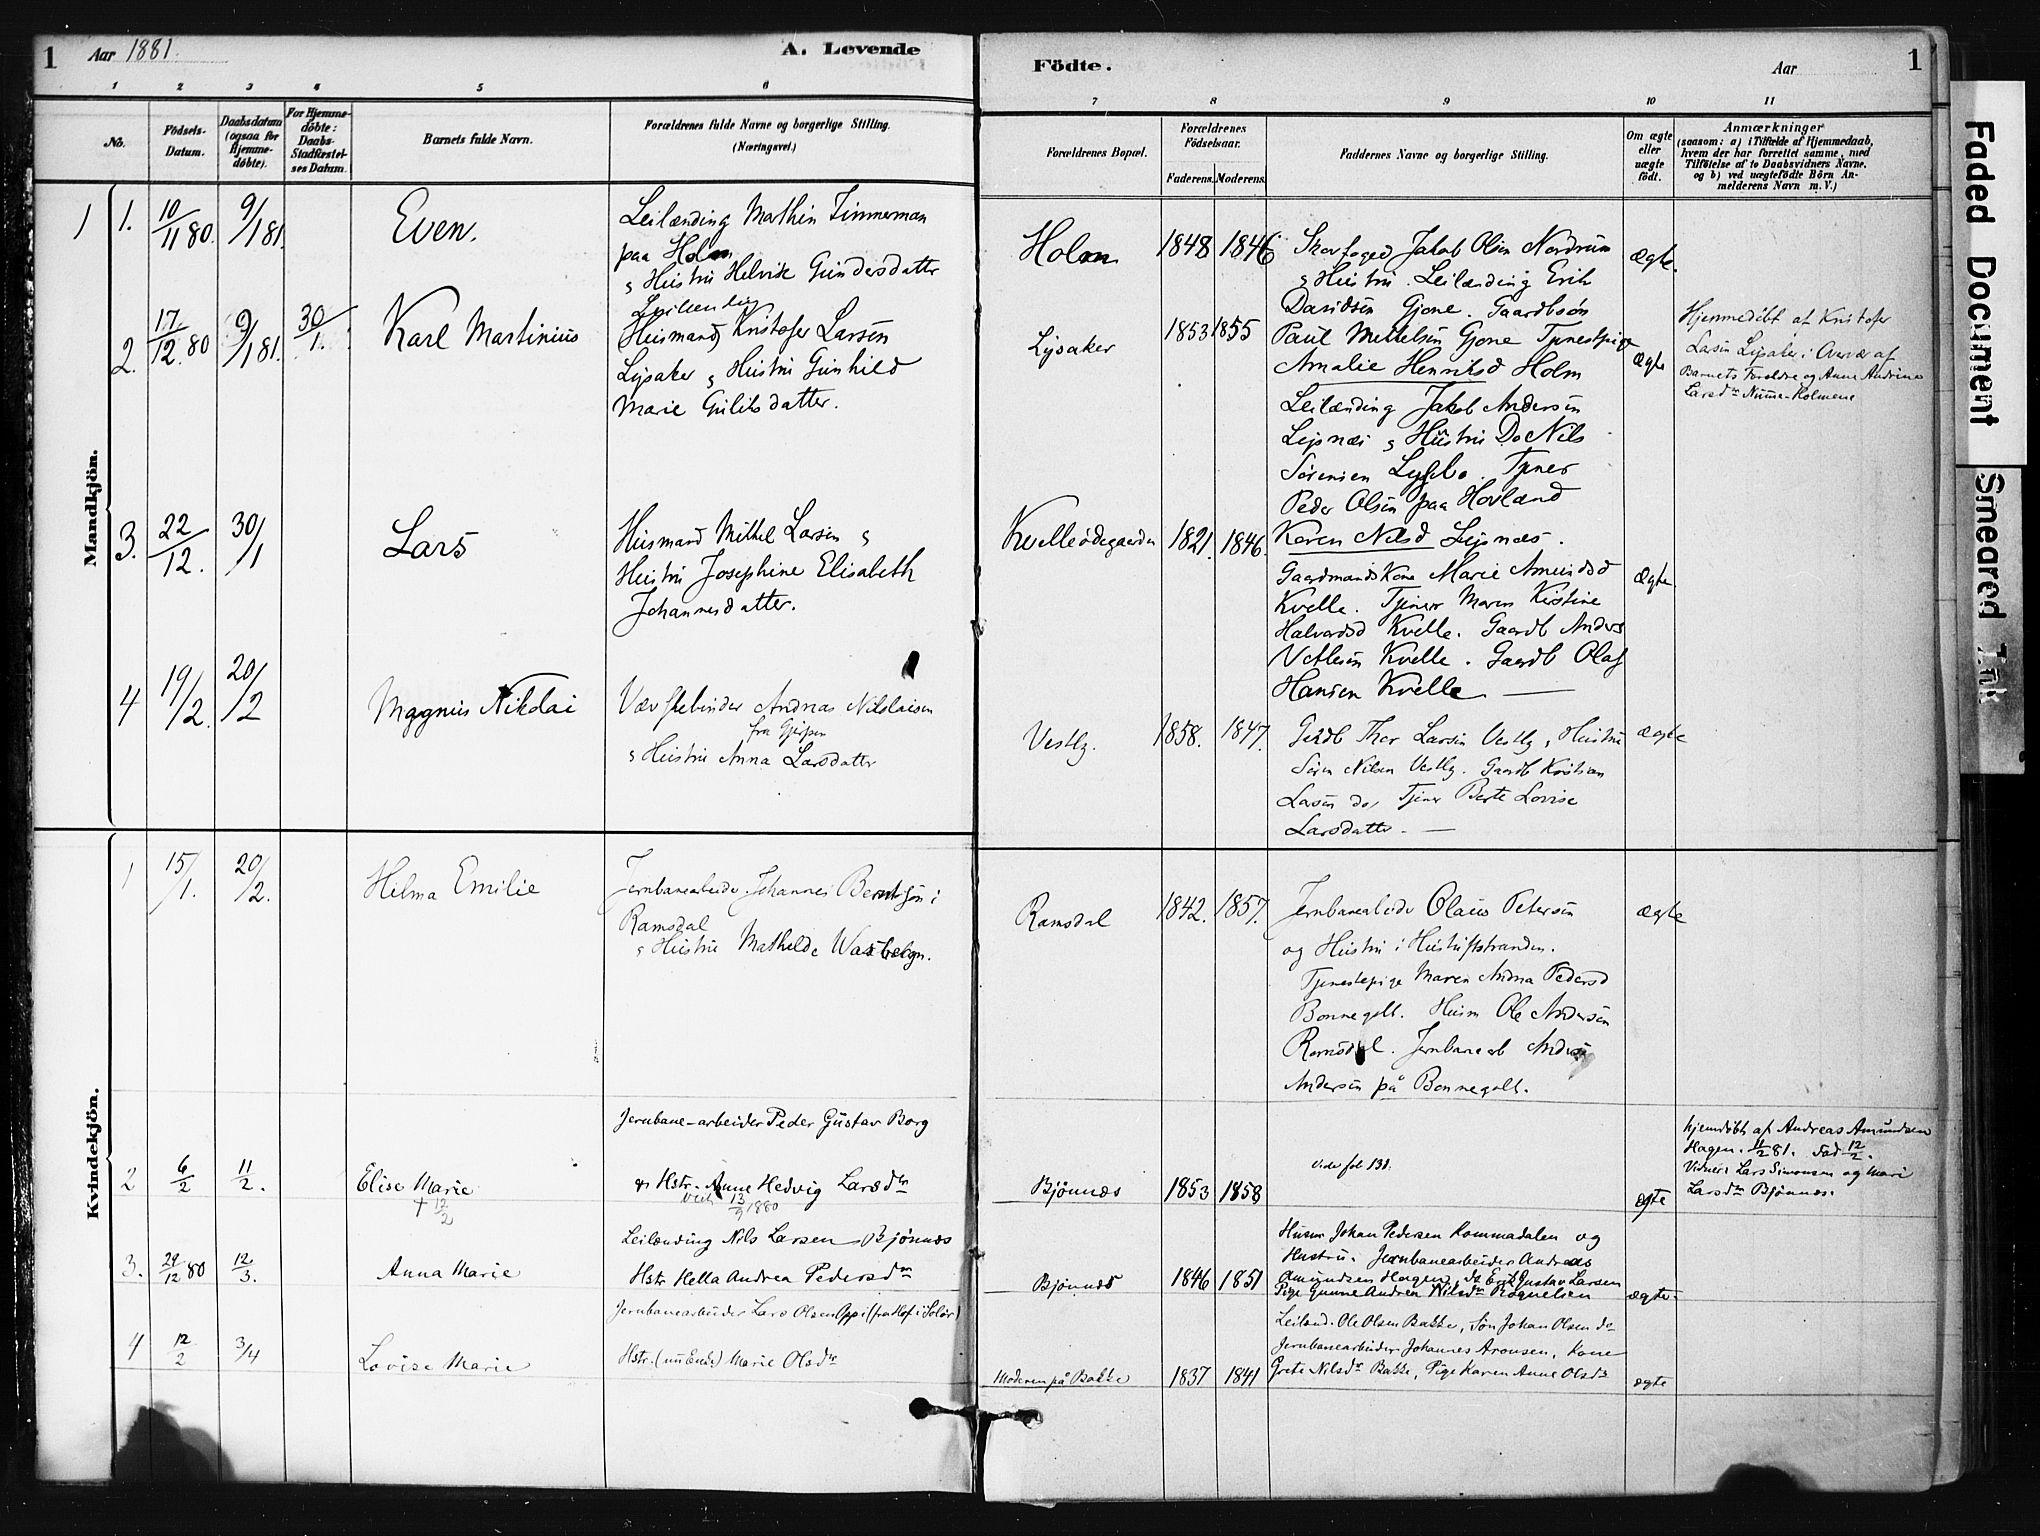 1 Aar 1881. A. Levende
Födte. Aar 1
1 2 3 4 5 6 7 8 9 10 11
No.
Födsels-
Datum.
Daabsdatum
(ogsaa for
Hjemme-
döbte).
For Hjemme-
döbte:
Daabs-
Stadfæstel-
ses Datum.
Barnets fulde Navn.
Forældrenes fulde Navne og borgerlige Stilling.
(Næringsvei.)
Forældrenes Bopæl.
Forældrenes
Födselsaar.
Faderens. Moderens.
Faddernes Navne og borgerlige Stilling.
Om ægte
eller
uægte
födt.
Anmærkninger
(saasom: a) i Tilfælde af Hjemmedaab,
hvem der har forrettet samme, med
Tilföielse af to Daabsvidners Navne,
og b) ved uægtefödte Börn An-
melderens Navn m. V.)
Mandkjön.
1 1. 10/11 80. 9/1 81. Even.
Leilænding Mathis Timmerman
paa Holm
& Hustru Helvik Gundersdatter
Holm 1848 1846
Skovfoged Jakob Olsen Nordrum
& Hustru. Leilænding Erik
Davidsen Gjone. Gaardbsøn
ægte.
2. 17/12 80 9/1 81. 30/1. Karl Martinius
Leilænding
Husmand Kristofer Larsen
Lysaker & Hustru Gunhild
Marie Gulliksdatter.
Lysaker 1853 1855
Paul Mikkelsen Gjone Tjenestpige
Amalie Henriksd Holm
Leilænding Jakob Andersen
Lysnæs & Hustru Do Nils
Sørensen Tjener
Peder Olsen paa Hovland
Karen Nilsd Lysnæs.
ægte
Hjemmedöbt af Kristofer
Larsen Lysaker i Overvær af
Barnets Foreldre og Anne Andrine
Larsdr Numme-Holmene
3. 22/12. 30/1 Lars
Husmand Mikkel Larsen &
Hustru Josephine Elisabeth
Johannesdatter.
Kvelleødegaarden 1821. 1846.
Gaardmandskone Marie Amundsd
Kvelle. Tjener Maren Kirstine
Halvordsd Kvelle. Gaardb Anders
Vetlesen Kvelle. Gaardb Olaf
Hansen Kvelle
ægte
4 19/2. 20/2 Magnus Nikolai
Andreas Nikolaisen
fra Gjerpen
& Hustru Anna Larsdatter
Vestby. 1858. 1847.
Gaardb Thor Larsen Vestby, Hustru
Søren Nilsen Vestby. Gaardb Kristian
Larsen do, Tjener Berte Lovise
Larsdatter.
ægte
Kvindekjön.
1 15/1. 20/2. Hilma Emilie
Jernbanearbeider Johannes Berntsen i
Ramsdal
& Hustru Mathilde
Ramsdal 1842. 1857.
Jernbanearbeider Olaus Petersen
og Hustru i
Tjenestepige Maren Andrea Pedersd
Bonnegolt. Husm Ole Andersen
Ramsdal. Jernbanearb Andreas
Andersen på Bonnegolt.
ægte
2 6/2 11/2. Elise Marie
† 12/2
Jernbane-arbeider Peder Gustav Borg
& Hstr. Anne Hedvig Larsdr
13/9 1880
Bjönnes 1853 1858
vide fol 131.
ægte
hjemdöbt af Andreas Amundsen
Hagen. 11/2 81. død 12/2.
Vidner: Lars Simonsen og Mari
Larsdr Bjönnes.
3. 29/12 80 12/3. Anna Marie
Leilænding Nils Larsen Bjönnes
Hstr Hella Andrea Pedersdr
Bjönnes 1846 1851
Husm Johan Pedersen Kommedalen og
Hustru. Jernbanearbeider Andreas
Amundsen Hagen, do Erik Gustav Larsen
Pige Gunne Andrea Nilsdr Rognelien
ægte.
4 12/2 3/4 Lovise Marie
Jernbanearbeider Lars Olsen Oppi (fra Hof i Solör)
Hstr. (nu Enke) Marie Olsdr
Moderen på Bakke 1837 1841
Leilænd. Ole Olsen Bakke, Søn Johan Olsen do
Jernbanearbeider Johannes Aronsen, Kone
Grete Nilsdr Bakke, Pige Karen Anne Olsdr
ægte
Faded Document
Smeared Ink